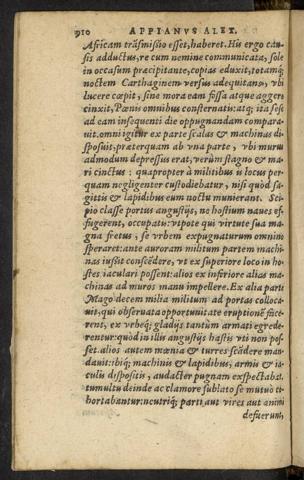 910 APPIANVS ALEX.
Africam trāsmissio esset, haberet. His ergo cau-
sis adductus, re cum nemine communicata, sole
in occasum præcipitante, copias eduxit, totamq́;
noctem Carthaginem versus adequitans, vbi
lucere cœpit, sine mora eam fossa atque aggere
cinxit, Pœnis omnibus consternatis: atq; ita sese
ad eam insequenti die oppugnandam compara-
uit. omni igitur ex parte scalas & machinas di-
sposuit, præterquam ab vna parte, vbi muru
admodum depressus erat, verùm stagno & ma-
ri cinctus: quapropter à militibus is locus per-
quam negligenter custodiebatur, nisi quòd sa-
gittis & lapidibus eum noctu munierant. Sci-
pio classe portus angustijs, ne hostium naues ef-
fugerent, occupatis: vtpote qui virtute sua ma-
gna fretus, se vrbem expugnaturum omnino
speraret: ante auroram militum partem machi-
nas iussit conscēdere, vt ex superiore loco in ho-
stes iaculari possent: alios ex inferiore alias ma-
chinas ad muros manu impellere. Ex alia parti
Mago decem milia militum ad portas colloca-
uit, qui obseruata opportunitate eruptionē face-
rent, ex vrbeq́; gladijs tantùm armati egrede-
rentur: quòd in illis angustijs hastis vti non pos-
set. alios autem mœnia & turres scādere man-
dauit: ibiq́; machinis & lapidibus, armis & ia-
culis dispositis, audacter pugnam exspectabat.
tumultu deinde ac clamore sublato se mutuò
hortabantur: neutriq́; parti aut vires aut animi
defuerunt,